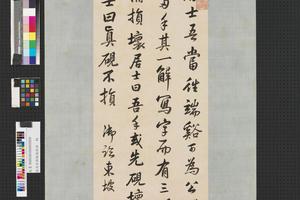 士吾當往端谿可為公
手其一解寫字而有三
損壞居士曰吾手或先硯壞
士曰真硯不損
御臨東坡